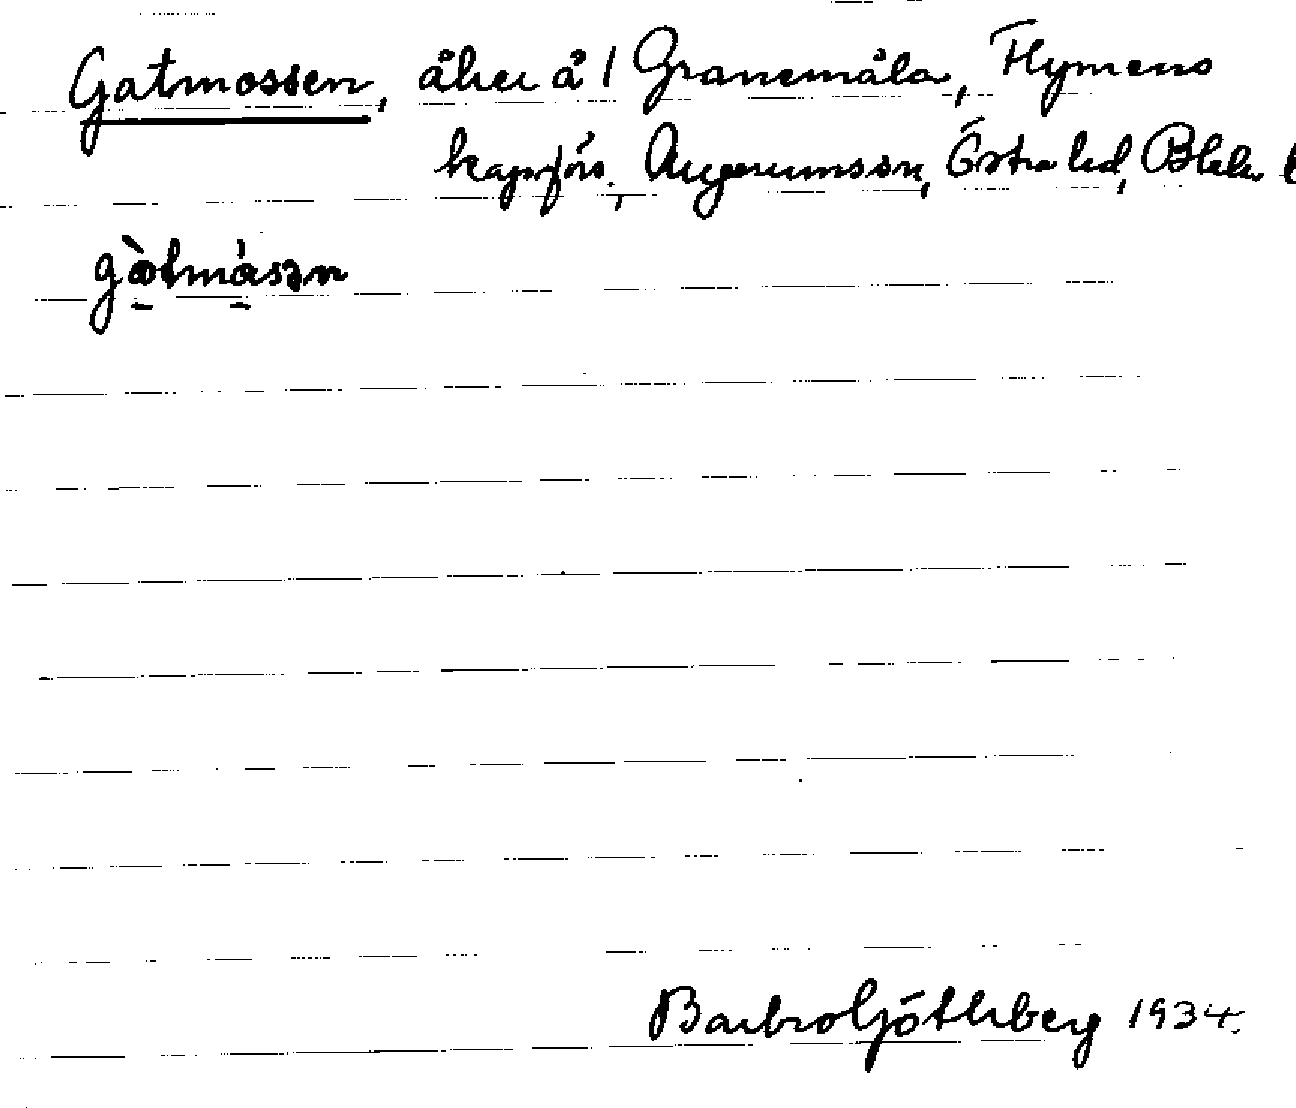 Gatmossen, åker å 1 Granemåla, Flymens
kapp förs., Augerumssn, Östra hd, Blek. l
gàtmásən
Barbro Göthberg 1934.